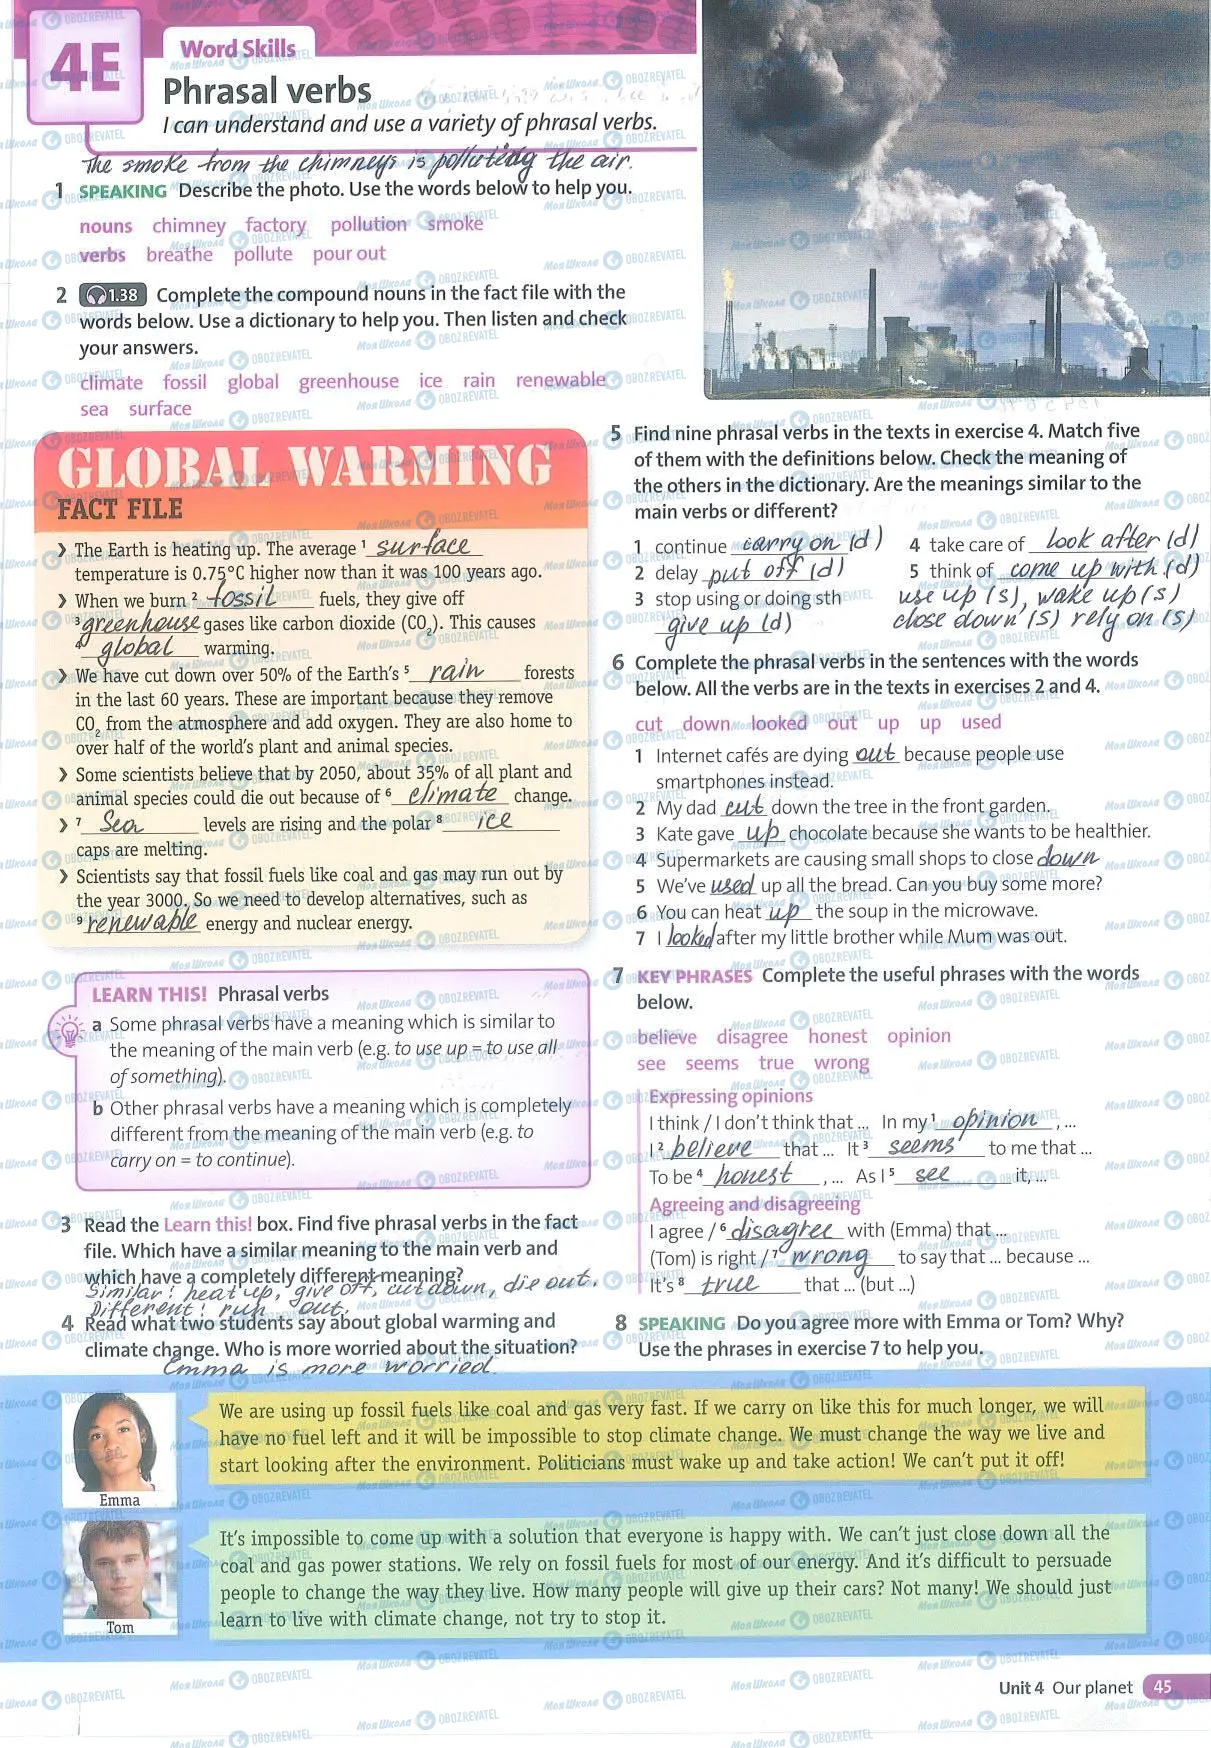 4E
Word Skills
Phrasal verbs
I can understand and use a variety of phrasal verbs.
The smoke from the chimneys is polluting the air.
1 SPEAKING Describe the photo. Use the words below to help you.
nouns chimney factory pollution smoke
verbs breathe pollute pour out
2 1.38 Complete the compound nouns in the fact file with the
words below. Use a dictionary to help you. Then listen and check
your answers.
climate fossil global greenhouse ice rain renewable
sea surface
GLOBAL WARMING
FACT FILE
› The Earth is heating up. The average ¹ surface
temperature is 0.75°C higher now than it was 100 years ago.
› When we burn ² fossil fuels, they give off
³ greenhouse gases like carbon dioxide (CO₂). This causes
⁴ global warming.
› We have cut down over 50% of the Earth's ⁵ rain forests
in the last 60 years. These are important because they remove
CO₂ from the atmosphere and add oxygen. They are also home to
over half of the world's plant and animal species.
› Some scientists believe that by 2050, about 35% of all plant and
animal species could die out because of ⁶ climate change.
› ⁷ Sea levels are rising and the polar ⁸ ice
caps are melting.
› Scientists say that fossil fuels like coal and gas may run out by
the year 3000. So we need to develop alternatives, such as
⁹ renewable energy and nuclear energy.
LEARN THIS! Phrasal verbs
a Some phrasal verbs have a meaning which is similar to
the meaning of the main verb (e.g. to use up = to use all
of something).
b Other phrasal verbs have a meaning which is completely
different from the meaning of the main verb (e.g. to
carry on = to continue).
3 Read the Learn this! box. Find five phrasal verbs in the fact
file. Which have a similar meaning to the main verb and
which have a completely different meaning?
Similar: heat up, give off, cut down, die out.
Different: run out.
4 Read what two students say about global warming and
climate change. Who is more worried about the situation?
Emma is more worried.
5 Find nine phrasal verbs in the texts in exercise 4. Match five
of them with the definitions below. Check the meaning of
the others in the dictionary. Are the meanings similar to the
main verbs or different?
1 continue carry on (d)
2 delay put off (d)
3 stop using or doing sth
give up (d)
4 take care of look after (d)
5 think of come up with (d)
use up (s), wake up (s)
close down (s) rely on (s)
6 Complete the phrasal verbs in the sentences with the words
below. All the verbs are in the texts in exercises 2 and 4.
cut down looked out up up used
1 Internet cafés are dying out because people use
smartphones instead.
2 My dad cut down the tree in the front garden.
3 Kate gave up chocolate because she wants to be healthier.
4 Supermarkets are causing small shops to close down
5 We've used up all the bread. Can you buy some more?
6 You can heat up the soup in the microwave.
7 I looked after my little brother while Mum was out.
7 KEY PHRASES Complete the useful phrases with the words
below.
believe disagree honest opinion
see seems true wrong
Expressing opinions
I think / I don't think that ... In my ¹ opinion , ...
I ² believe that ... It ³ seems to me that ...
To be ⁴ honest , ... As I ⁵ see it, ...
Agreeing and disagreeing
I agree / ⁶ disagree with (Emma) that ...
(Tom) is right / ⁷ wrong to say that ... because ...
It's ⁸ true that ... (but ...)
8 SPEAKING Do you agree more with Emma or Tom? Why?
Use the phrases in exercise 7 to help you.
We are using up fossil fuels like coal and gas very fast. If we carry on like this for much longer, we will
have no fuel left and it will be impossible to stop climate change. We must change the way we live and
start looking after the environment. Politicians must wake up and take action! We can't put it off!
Emma
It's impossible to come up with a solution that everyone is happy with. We can't just close down all the
coal and gas power stations. We rely on fossil fuels for most of our energy. And it's difficult to persuade
people to change the way they live. How many people will give up their cars? Not many! We should just
learn to live with climate change, not try to stop it.
Tom
Unit 4 Our planet 45
МояШкола OBOZREVATEL